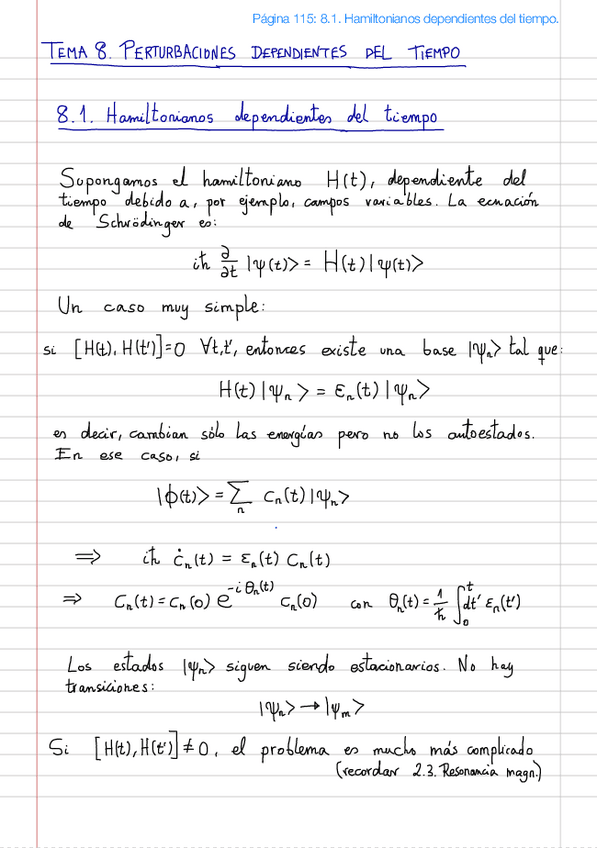 Página 115: 8.1. Hamiltonianos dependientes del tiempo.
TEMA 8. PERTURBACIONES DEPENDIENTES DEL TIEMPO
8.1. Hamiltonianos dependientes del tiempo
Supongamos el hamiltoniano H(t), dependiente del
tiempo debido a, por ejemplo, campos variables. La ecuación
de Schrödinger es:
iħ ∂/∂t |ψ(t)> = H(t)|ψ(t)>
Un caso muy simple:
si [H(t), H(t')]=0 ∀t,t', entonces existe una base |ψₙ> tal que:
H(t)|ψₙ> = εₙ(t)|ψₙ>
es decir, cambian sólo las energías pero no los autoestados.
En ese caso, si
|ϕ(t)> = ∑ₙ cₙ(t)|ψₙ>
⟹ iħ ċₙ(t) = εₙ(t) cₙ(t)
⇒ cₙ(t) = cₙ(0) e^(-iθₙ(t)) cₙ(0) con θₙ(t) = 1/ħ ∫₀ᵗ dt' εₙ(t')
Los estados |ψₙ> siguen siendo estacionarios. No hay
transiciones:
|ψₙ> → |ψₘ>
Si [H(t), H(t')] ≠ 0, el problema es mucho más complicado
(recordar 2.3. Resonancia magn.)